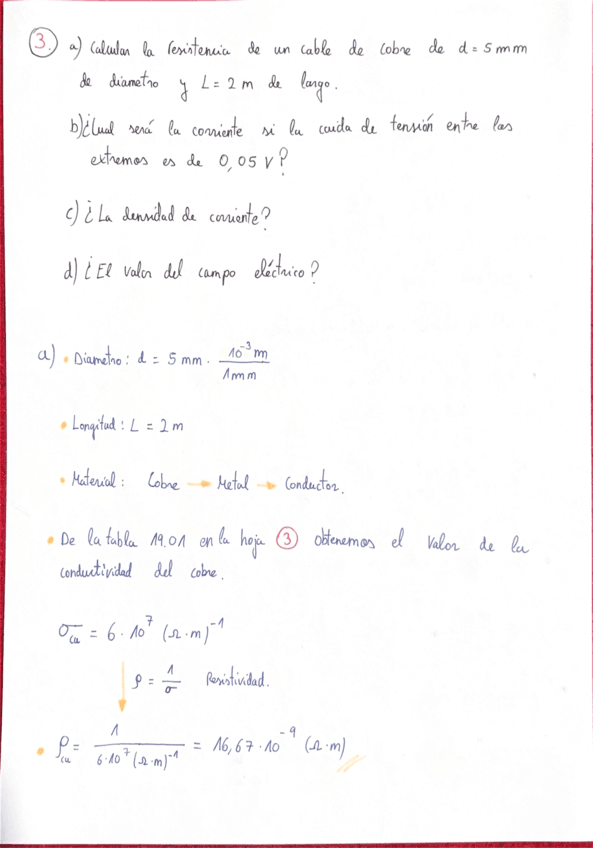 3. a) Calcular la resistencia de un cable de cobre de d = 5 mm
de diametro y L = 2 m de largo.
b) ¿Cual será la corriente si la caida de tensión entre los
extremos es de 0,05 V?
c) ¿La densidad de corriente?
d) ¿El valor del campo eléctrico?
a) • Diametro: d = 5 mm · 10⁻³ m / 1 mm
• Longitud: L = 2 m
• Material: Cobre → Metal → Conductor.
• De la tabla 19.01 en la hoja ③ obtenemos el valor de la
conductividad del cobre.
σcu = 6 · 10⁷ (Ω·m)⁻¹
ρ = 1/σ Resistividad.
• ρcu = 1 / 6·10⁷ (Ω·m)⁻¹ = 16,67 · 10⁻⁹ (Ω·m)